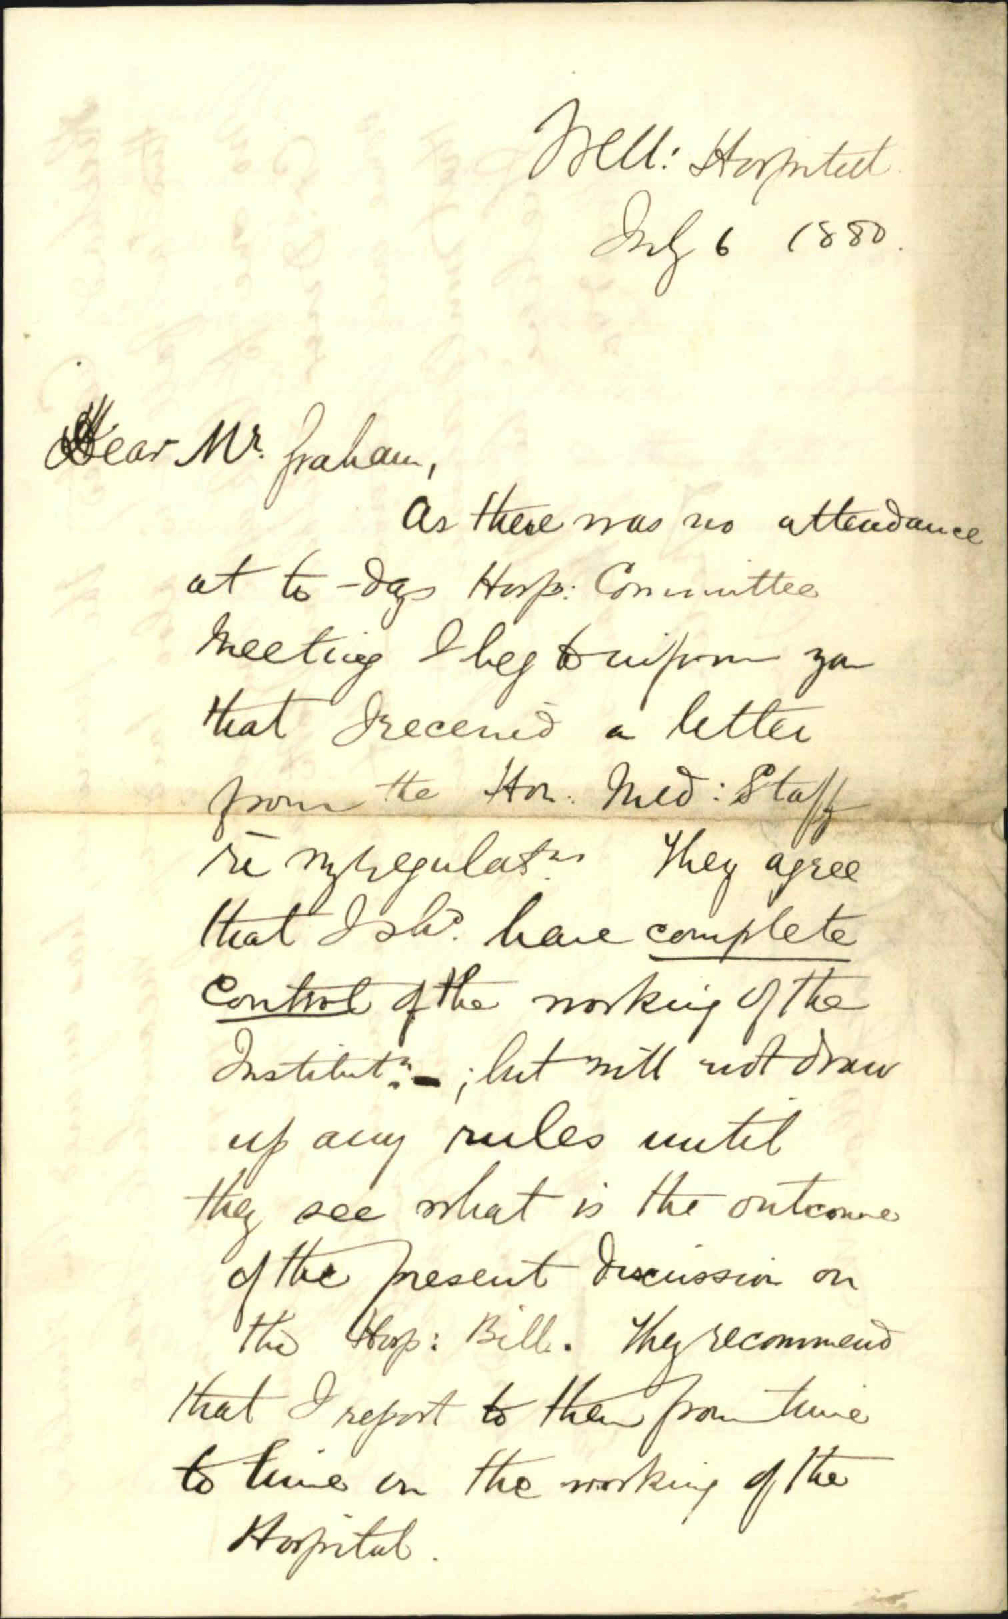 Well: Hospital
July 6 1880.
Dear Mr. Graham,
As there was no attendance
at to-days Hosp: Committee
Meeting I beg to inform you
that I received a letter
from the Hon. Med: Staff
re my regulatns. They agree
that I shd. have complete
control of the working of the
Institutn: - ; but will not draw
up any rules until
they see what is the outcome
of the present discussion on
the Hosp: Bill. They recommend
that I report to them from time
to time on the working of the
Hospital.